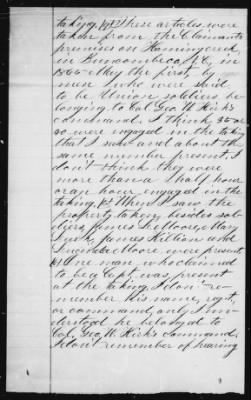 taking. These articles were
taken from the Claimants
premises on Hominy creek
in Buncombe co, N.C., in
1865 May the first, by
men who were said
to be Union soldiers, be-
longing to Col. Geo. W. Kirk's
command. I think 30 or
so were engaged in the taking
that I saw and about the
same number present. I
don't think they were
more than a half hour
or an hour engaged in the
taking. When I saw the
property taken, besides sol-
diers, James L. Moore, Mary
James Hilton and
Moore were present.
One man, who claimed
to be a Capt. was present
at the taking. I don't re-
member his name, regt.
or command, only I un-
derstood he belonged to
Col. Geo. W. Kirk's command.
I don't remember of hearing